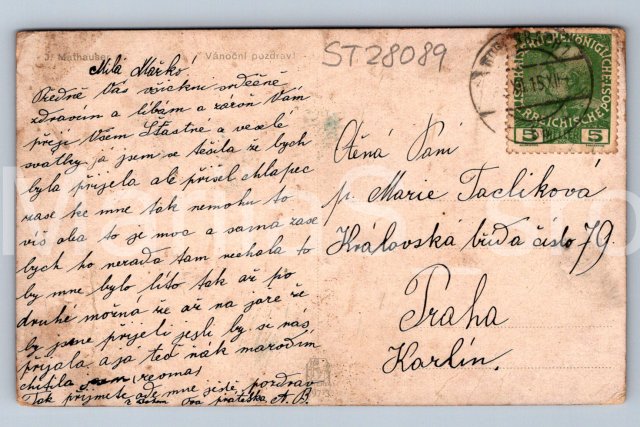 J. Mathauser
Vánoční pozdrav!
ST28089
Milá Mařko!
Předně Vás srdečně
zdravím a líbám a zaron Vám
přeji Všem Šťastné a veselé
svatky, já jsem se těšila že bych
byla přijela ale přišel chlapec
zase ke mne tak nemohu to
víš oba to je moc a sama zase
bych ho nerada tam nechala to
by mne bylo líto tak až po
druhé možná že až na jaře že
by jsme přijeli jesli by si nás
přijala. a já teď ňák marodím
chitila sem revma
Tak přijmete ode mne ještě pozdrav
Tva přátelka A. B.
Ctěná Paní
p. Marie Taclíková
Královská třída číslo 79.
Praha
Karlín.
15 XII
5 HELLER 5